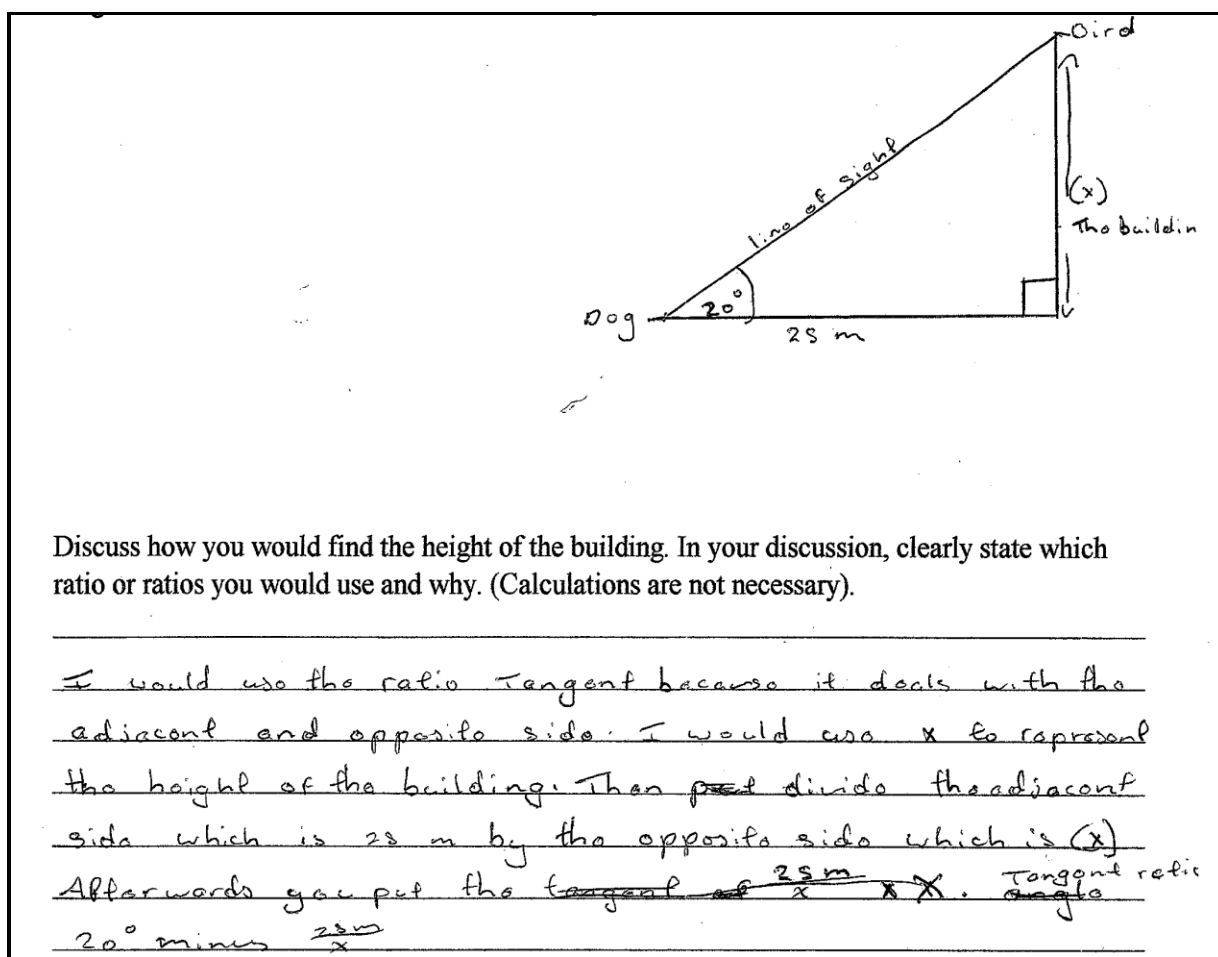 Bird
line of sight
(x)
The buildin
20°
Dog
25 m
Discuss how you would find the height of the building. In your discussion, clearly state which
ratio or ratios you would use and why. (Calculations are not necessary).
I would use the ratio Tangent because it deals with the
adjacent and opposite side. I would use x to represent
the height of the building. Then put divide the adjacent
side which is 25 m by the opposite side which is (x)
Afterwards you put the tangent of 25m/x x X. angle Tangent ratio
20° minus 25m/x